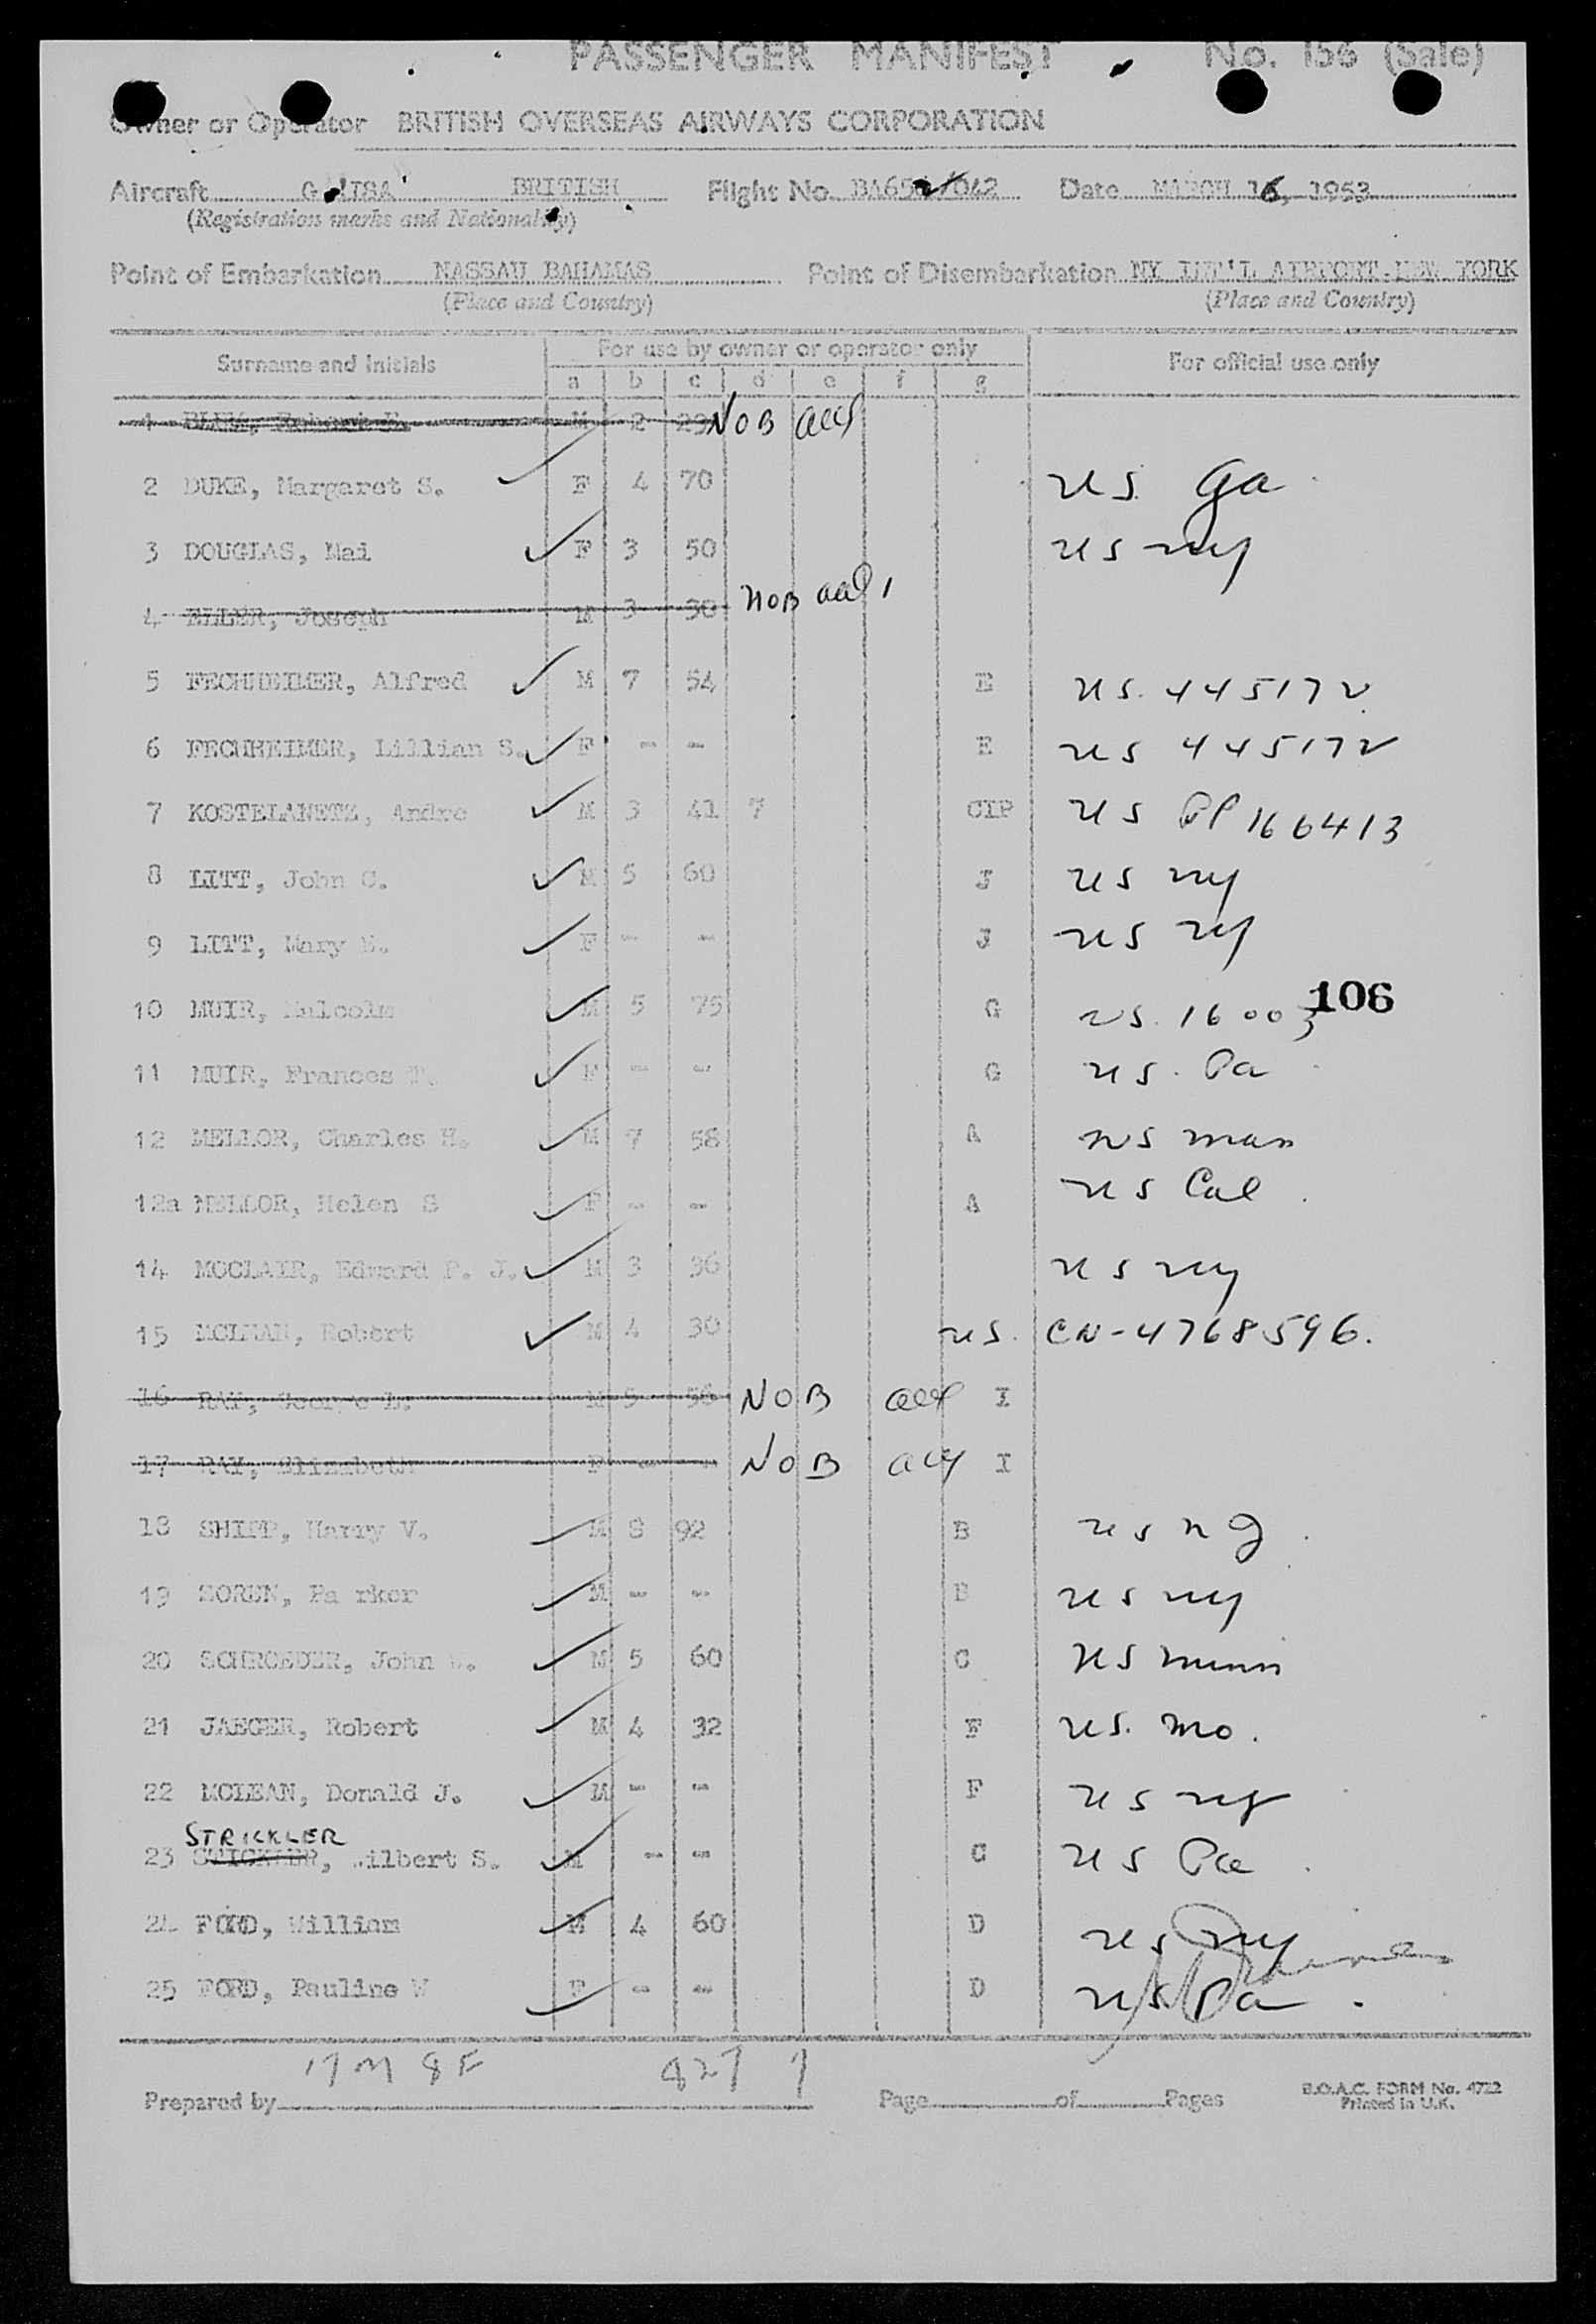 PASSENGER MANIFEST No. 156 (Sale)
Owner or Operator BRITISH OVERSEAS AIRWAYS CORPORATION
Aircraft BRITISH Flight No. Date MARCH 16, 1953
(Registration marks and Nationality)
Point of Embarkation NASSAU BAHAMAS Point of Disembarkation NY INT'L AIRPORT NEW YORK
(Place and Country) (Place and Country)
Surname and Initials For use by owner or operator only For official use only
a b c d e f g
1 M 2 29 NOB
2 DUKE, Margaret S. F 4 70 US. Ga
3 DOUGLAS, Mai F 3 50 US ny
4 ELLER, Joseph M 3 30 NOB
5 FECHHEIMER, Alfred M 7 54 E US. 445172
6 FECHHEIMER, Lillian S. F - - E US 445172
7 KOSTELANETZ, Andre M 3 41 7 CIP US PP 166413
8 LITT, John C. M 5 60 J US ny
9 LITT, Mary F - - J US ny
10 MUIR, Malcolm M 5 75 G US. 16003 106
11 MUIR, Frances T. F - - G US. Pa
12 MELLOR, Charles H. M 7 58 A US mass
12a MELLOR, Helen S F - - A US Cal.
14 MOCLAIR, Edward P. J. M 3 36 US ny
15 Robert M 4 30 US. CN-4768596.
16 RAY, George L. M 5 56 NOB I
17 RAY, Elizabeth F - - NOB I
18 SHIPP, Harry V. M 8 92 B US n J.
19 SOREN, Pa rker M - - B US ny
20 SCHROEDER, John M 5 60 C US minn
21 JAEGER, Robert M 4 32 F US. Mo.
22 MCLEAN, Donald J. M - - F US ny
STRICKLER
23 STICKLER, ilbert S. M - - C US Pa.
24 FORD, William M 4 60 D US ny
25 FORD, Pauline W F - - D US Pa.
17 M 8 F 827 7
Prepared by Page of Pages B.O.A.C. FORM No. 4722
Printed in U.K.